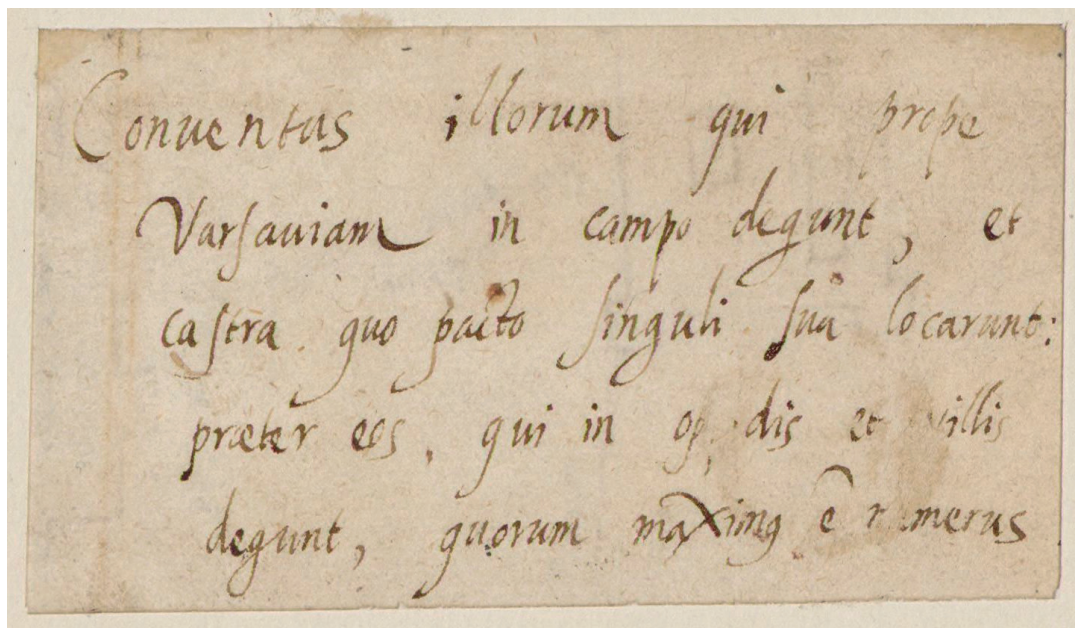 Conuentus illorum qui prope
Varsauiam in campo degunt, et
castra quo pacto singuli sua locarunt:
præter eos, qui in et villis
degunt, quorum ē numerus